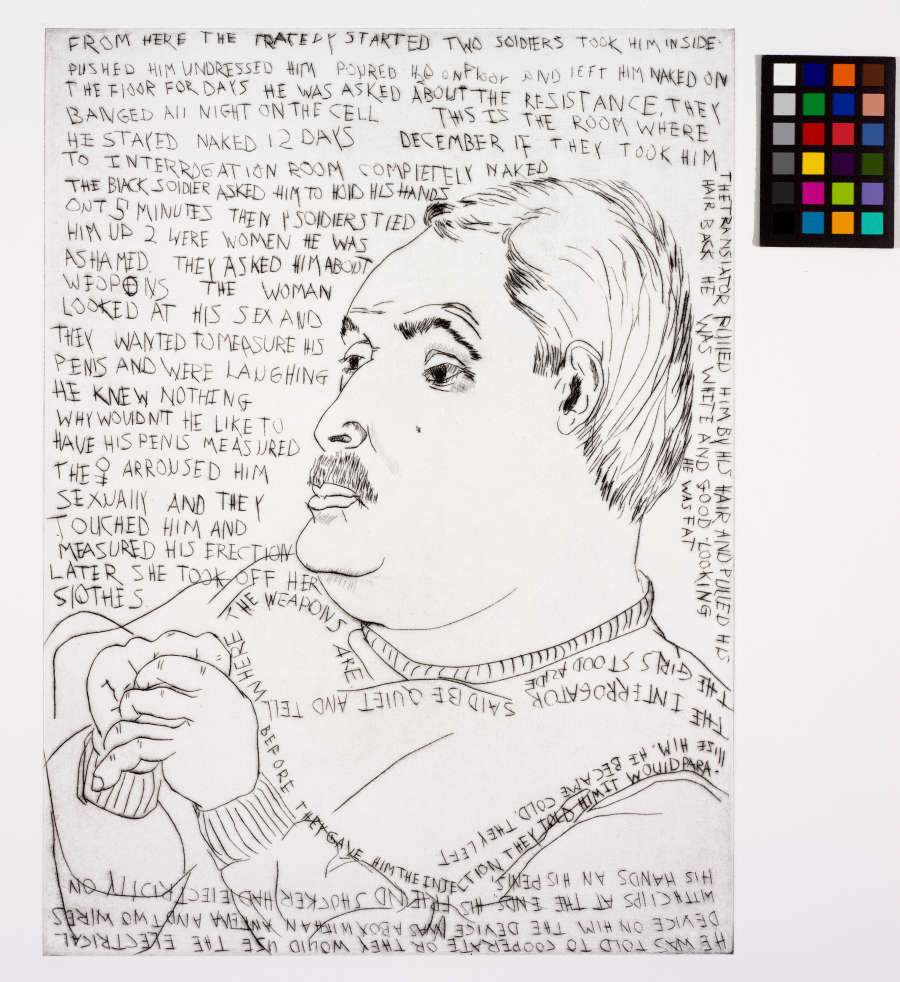 FROM HERE THE TRATEDY STARTED TWO SOIDIERS TOOK HIM INSIDE.
PUSHED HIM UNDRESSED HIM POURED H2O ON FLOOR AND LEFT HIM NAKED ON
THE FLOOR FOR DAYS HE WAS ASKED ABOUT THE RESISTANCE, THEY
BANGED All NIGHT ON THE CELL THIS IS THE ROOM WHERE
HE STAYED NAKED 12 DAYS DECEMBER IF THEY TOOK HIM
TO INTERROGATION ROOM COMPLETELY NAKED
THE BlACK SOIDIER ASKED HIM TO HOlD HIS HANDS
OUT 5 MINUTES THEN 4 SOIDIERS TIED
HIM UP 2 WERE WOMEN HE WAS
ASHAMED. THEY ASKED HIM ABOUT
WEOPENS THE WOMAN
LOOKED AT HIS SEX AND
THEY WANTED TO MEASURE HIS
PENIS AND WERE LAUGHING
HE KNEW NOTHING
WHY WOUlDNT HE LIKE TO
HAVE HIS PENIS MEASURED
THE ♀ ARROUSED HIM
SEXUAllY AND THEY
TOUCHED HIM AND
MEASURED HIS ERECTION
LATER SHE TOOK OFF HER
SlOTHES.
THE TRANSlATOR PUllED HIM BY HIS HAIR AND PUllED HIS
HAIR BACK HE WAS WHITE AND GOOD LOOKING
HE WAS FAT
THE GIRLS STOOD ASIDE
THE INTERROGATOR SAID BE QUIET AND TELL
WHERE THE WEAPONS ARE
BEFORE THEY GAVE HIM THE INJECTION THEY TOlD HIM IT WOUlD PARA-
lIZE HIM. HE BECAME COLD. THEY LEFT
HE WAS TOLD TO COOPERATE OR THEY WOUlD USE THE ELECTRICAL
DEVICE ON HIM THE DEVICE WAS A BOX WITH AN ANTENA AND TWO WIRES
WITH ClIPS AT THE ENDS. HIS FRIEND SHOCKER HAD ElECTRICITY ON
HIS HANDS AN HIS PENIS.